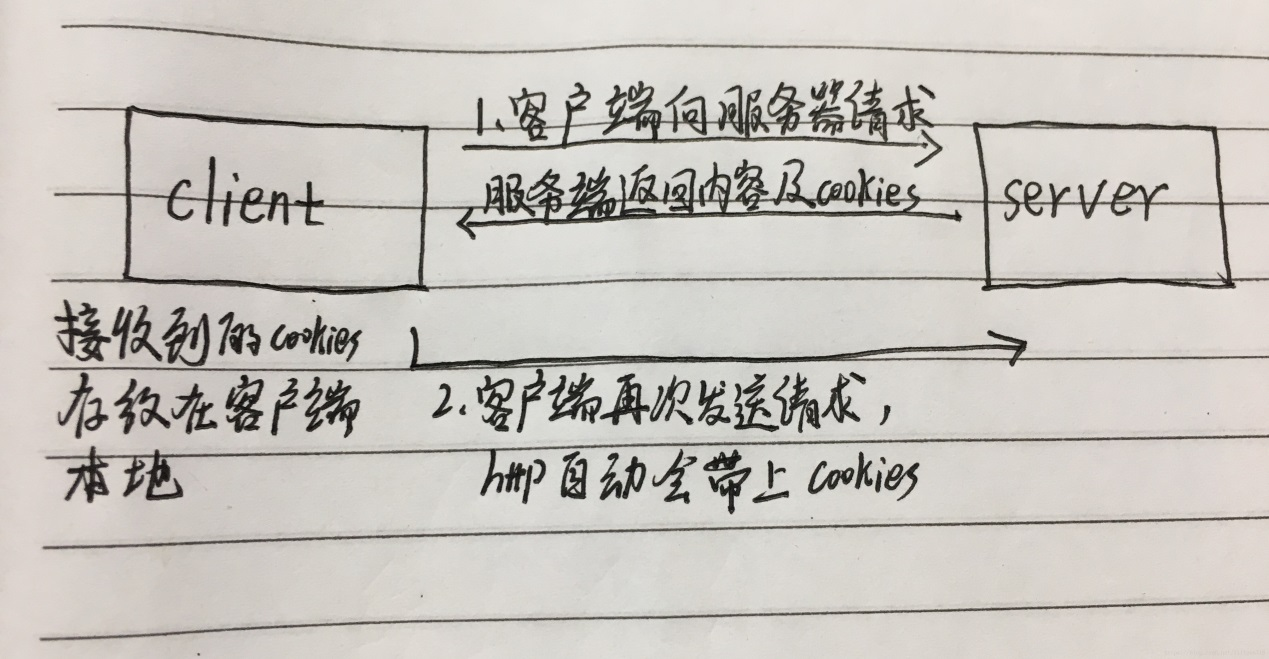 1.客户端向服务器请求
client
服务端返回内容及cookies
server
接收到的cookies
存放在客户端
本地
2.客户端再次发送请求,
http自动会带上cookies